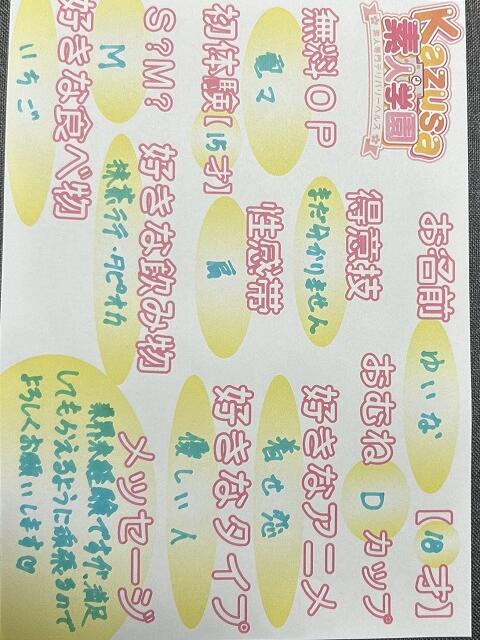 Kazusa
素人学園
素人専門デリバリーヘルス
お名前 ゆいな 【18才】
おむね D カップ
得意技
まだ分かりません
好きなアニメ
着せ恋
無料OP
電マ
性感帯
好きなタイプ
優しい人
初体験【15才】
S?M?
M
好きな飲み物
抹茶ラテ・タピオカ
好きな食べ物
いちご
メッセージ
業界未経験ですが、満足
してもらえるように頑張るので
よろしくお願いします